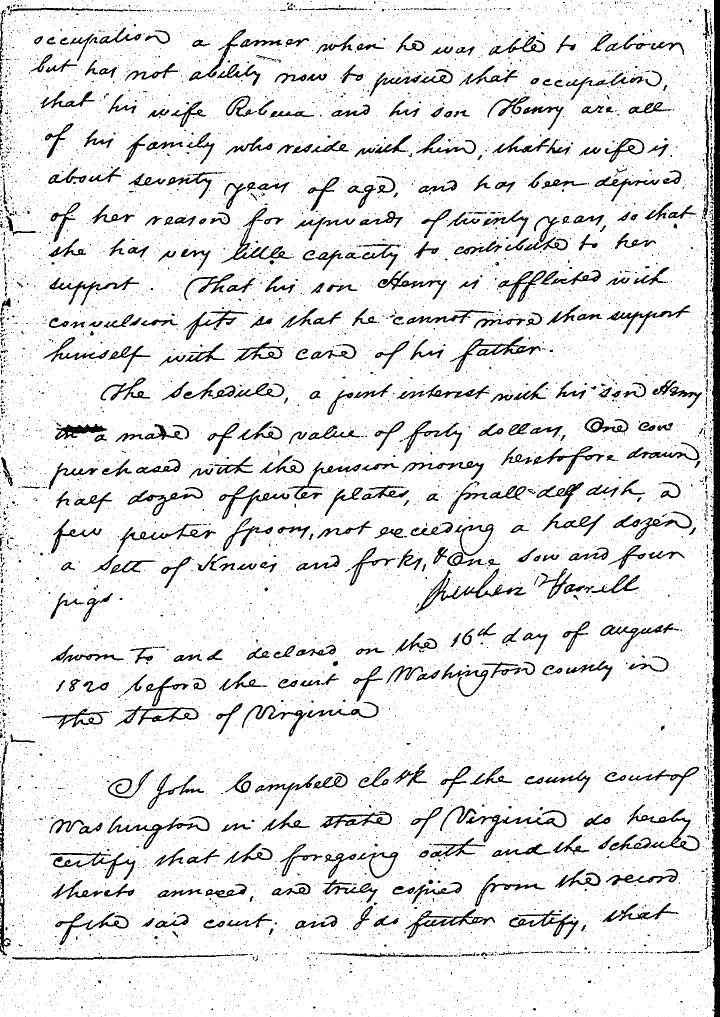 occupation a farmer when he was able to labour
but has not ability now to pursue that occupation,
that his wife Rebecca and his son Henry are all
of his family who reside with him, that his wife is
about seventy years of age, and has been deprived
of her reason for upwards of twenty years, so that
she has very little capacity to contribute to her
support. That his son Henry is afflicted with
convulsion fits so that he cannot more than support
himself with the care of his father.
The Schedule, a joint interest with his son Henry
in a mare of the value of forty dollars, One cow
purchased with the pension money heretofore drawn,
half dozen of pewter plates, a small delf dish, a
few pewter spoons, not exceeding a half dozen,
a sett of Knives and forks, & One sow and four
pigs. Reuben Harrell
Sworn to and declared on the 16th day of August
1820 before the court of Washington county in
the State of Virginia
I John Campbell clerk of the county court of
Washington in the state of Virginia do hereby
certify that the foregoing oath and the schedule
thereto annexed, are truly copied from the record
of the said court; and I do further certify, that